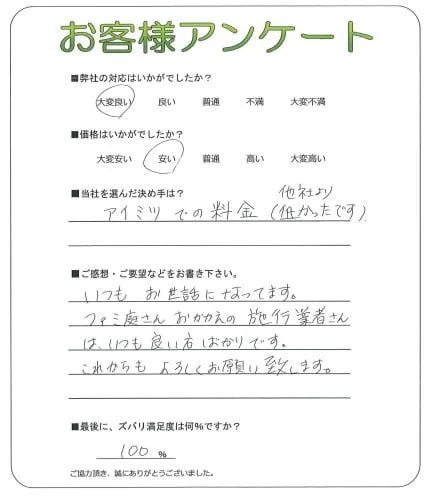 お客様アンケート
■弊社の対応はいかがでしたか？
大変良い 良い 普通 不満 大変不満
■価格はいかがでしたか？
大変安い 安い 普通 高い 大変高い
■当社を選んだ決め手は？
他社より
アイミツでの料金 (低かったです)
■ご感想・ご要望などをお書き下さい。
いつも お世話になってます。
ファミ庭さん おかかえの 施行業者さん
は、いつも良い方ばかりです。
これからも よろしくお願い致します。
■最後に、ズバリ満足度は何％ですか？
100 ％
ご協力頂き、誠にありがとうございました。